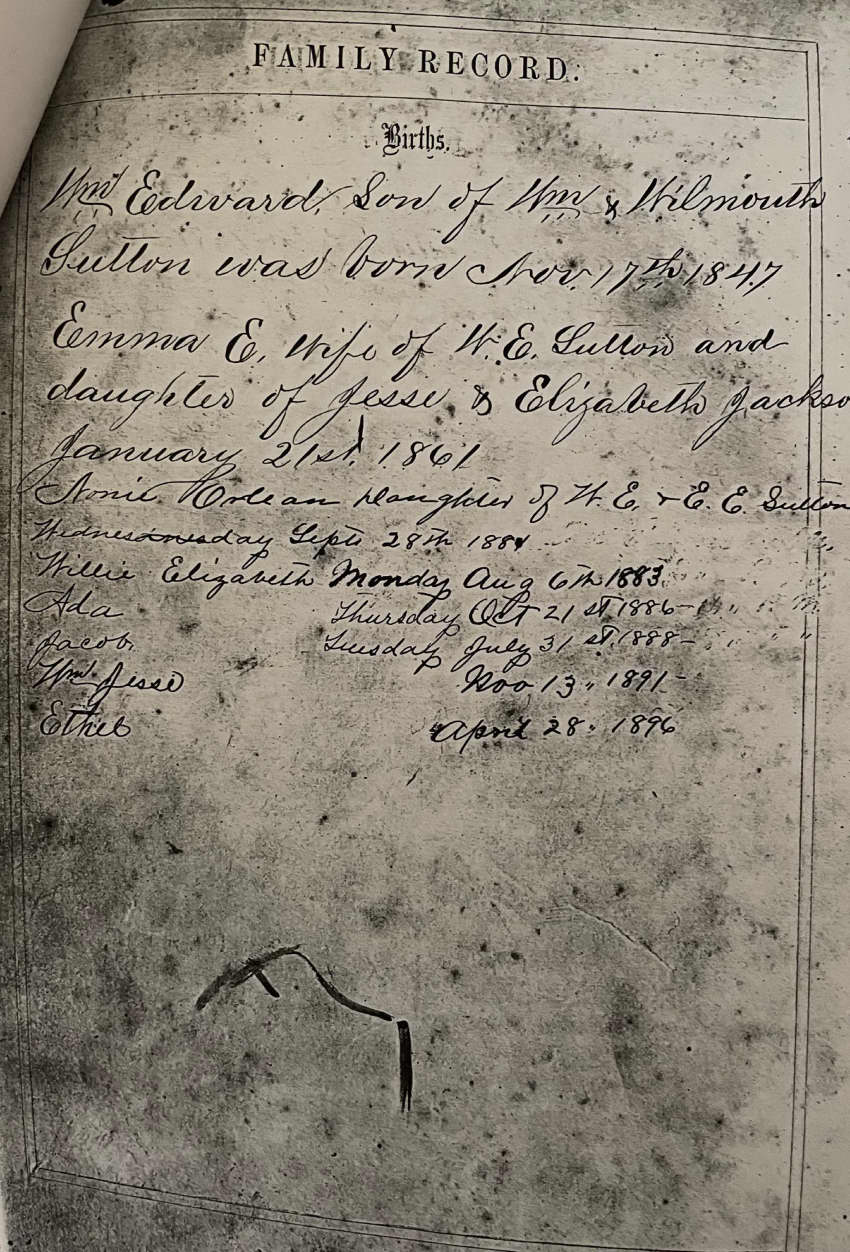 FAMILY RECORD.
Births.
Wm Edward, Son of Wm & Wilmouth
Sutton was born Nov. 17th 1847
Emma E, Wife of W. E. Sutton and
daughter of Jesse & Elizabeth Jackso
January 21st, 1861
Nonie Orlean Daughter of W. E. & E. E. Sutton
Wednesday Sept 28th 1881
Willie Elizabeth Monday Aug 6th 1883
Ada Thursday Oct 21st 1886 - " " " "
Jacob, Tuesday July 31st, 1888 - " " " "
Wm. Jesse Nov 13, 1891 -
Ethel April 28. 1896